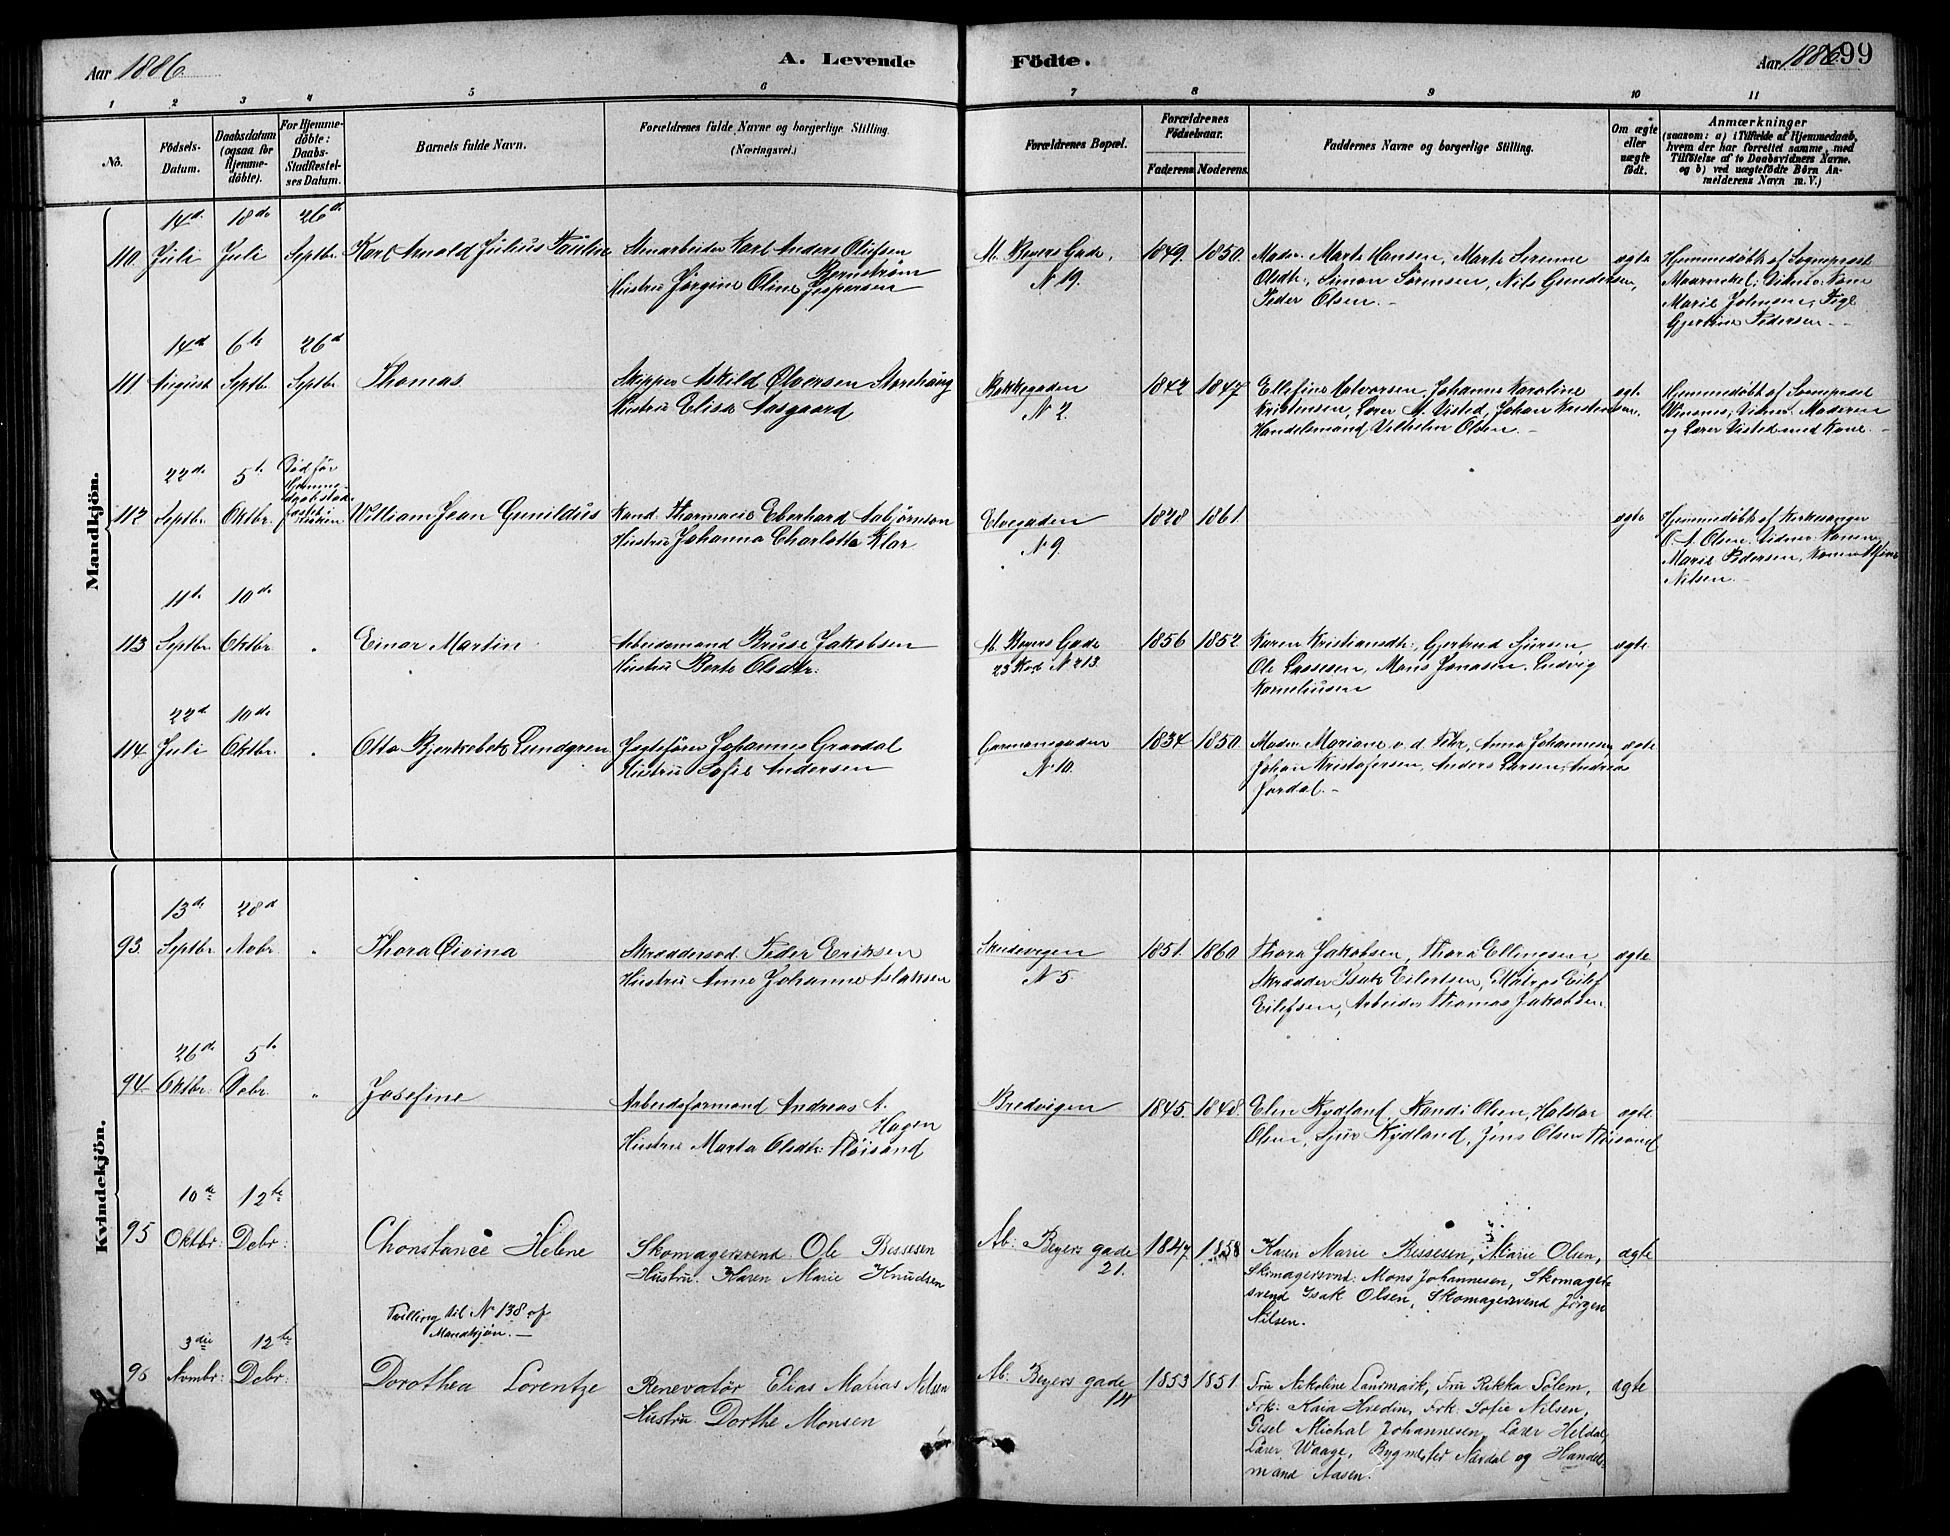 Aar 1886.
A. Levende Födte.
Aar 1886. 199
1 2 3 4 5 6 7 8 9 10 11
Nö.
Födsels-Datum.
Daabsdatum (ogsaa for Hjemmedöbte).
For Hjemmedöbte: Daabs-Stadfæstelses Datum.
Barnets fulde Navn.
Forældrenes fulde Navne og borgerlige Stilling. (Næringsvei.)
Forældrenes Bopæl.
Forældrenes Födselsaar.
Faderens Moderens.
Faddernes Navne og borgerlige Stilling.
Om ægte eller uægte födt.
Anmærkninger
(saasom: a) i Tilfælde af Hjemmedaab, hvem der har forrettet samme, med Tilföielse af to Daabsvidners Navne. og b) ved uægtefödte Börn Anmelderens Navn m. V.)
Mandkjön.
14d. 18de 26d.
110. Juli Juli Septbr. Karl Arnold Julius Pauline
Karl Anders Olufsen Bernström
Hustru Jörgine Oline Jespersen
M. Beyers Gade,
N 19.
1849. 1850.
Mader. Marte Hansen, Marte Serenne
Olsdtr., Simon Sörensen, Nils Gundersen,
Peder Olsen. -
ægte
Hjemmedöbt af Sogneprest
Vidner: Kone
Marie Johnsen, Pige
Gjertine Pedersen - -
14d 6te 26d
111. August Septbr. Septbr. Thomas
Skipper Askild Olversen Storehaug
Hustru Elise Aasgaard
Bakkegaden
N 2.
1842 1847
Ellefine Halvorsen, Johanne Karoline
Kristensen, Lærer A. Visted, Johan Kristensen,
Handelsmand Vilhelm Olsen. -
ægte
Hjemmedöbt af Sogneprest
Vidner: Moderen
og Lærer Visted med Kone. -
22de 5te Död för
Hjemmedaabstadfæstet i Kirken
112 Septbr. Oktbr. William Jean Gunildus
Kand. Pharmacie Eberhard Asbjörnson
Hustru Johanna Charlotta Klar
Elvegaden
N 9.
1828 1861.
ægte
Hjemmedöbt af Kirkesanger
O. A. Olsen. Vidner: Konen
Marie Pedersen, Konen
Nilsen -
11te 10de
113 Septbr. Oktbr. " Einar Martin
Arbeidsmand Bruse Jakobsen
Hustru Berte Olsdtr.
M. Beyers Gade
23 Rod. N 213.
1856 1852.
Karen Kristiansdtr., Gjertrud Sjursen,
Ole Lassesen, Mons Jonasen, Ludvig
Korneliusen
ægte
22d 10de
114 Juli Oktbr. " Otto Bjerkebek Lundgren
Jægtefører Johannes Gravdal
Hustru Sofie Andersen
Garmansgaden
N 10.
1834 1850.
Mader Mariane v. d. Fehr, Anna Johannesen
Johan Kristofersen, Anders Larsen, Andreas
Jordal. -
ægte
Kvindekjön.
13de 28d
93. Septbr. Novbr. " Thora Oivina
Skræddersvd. Peder Eriksen
Hustru Anne Johanne Aslaksen
Skudevigen
N 5.
1851. 1860
Thora Jakobsen, Thora Ellingsen,
Skrædder Isak Eilertsen, Matros Eilef
Eilefsen, Arbeider Thomas Jakobsen
ægte
26de 5te
94. Oktbr. Debr. " Josefine
Arbeidsformand Andreas A.
Hagen
Hustru Marta Olsdtr. Flöisand
Bredvigen
1845. 1848.
Elen Kydland, Randi Olsen, Haldor
Olsen, Sjur Kydland, Jens Olsen Flöisand
ægte
10de 12te
95 Oktbr: Debr: Chonstance Helene
Skomagersvend. Ole Bessesen
Hustru. Karen Marie Knudsen
Ab: Beyers gade
21.
1847. 1858
Karen Marie Bessesen, Marie Olsen,
Skomagersvnd: Mons Johannesen, Skomager-
svend Isak Olsen, Skomagersvend Jörgen
Nilsen.
ægte
Tvilling til N° 138 af
Mandkjön. -
3die 12te
96 Novmbr: Debr: Dorothea Lorentze
Renevatör Elias Matias Nilsen
Hustru Dorthe Monsen
Ab: Beyers gade
14
1853 1851.
Fru Nikoline Landmark, Fru Rikka Solem,
Frk: Kaia Hvedin, Frk: Sofie Nilsen,
Gesel Michal Johannesen, Lærer Heldal,
Lærer Waage, Bygmester Nævdal og Handels-
mand Aasen.
ægte